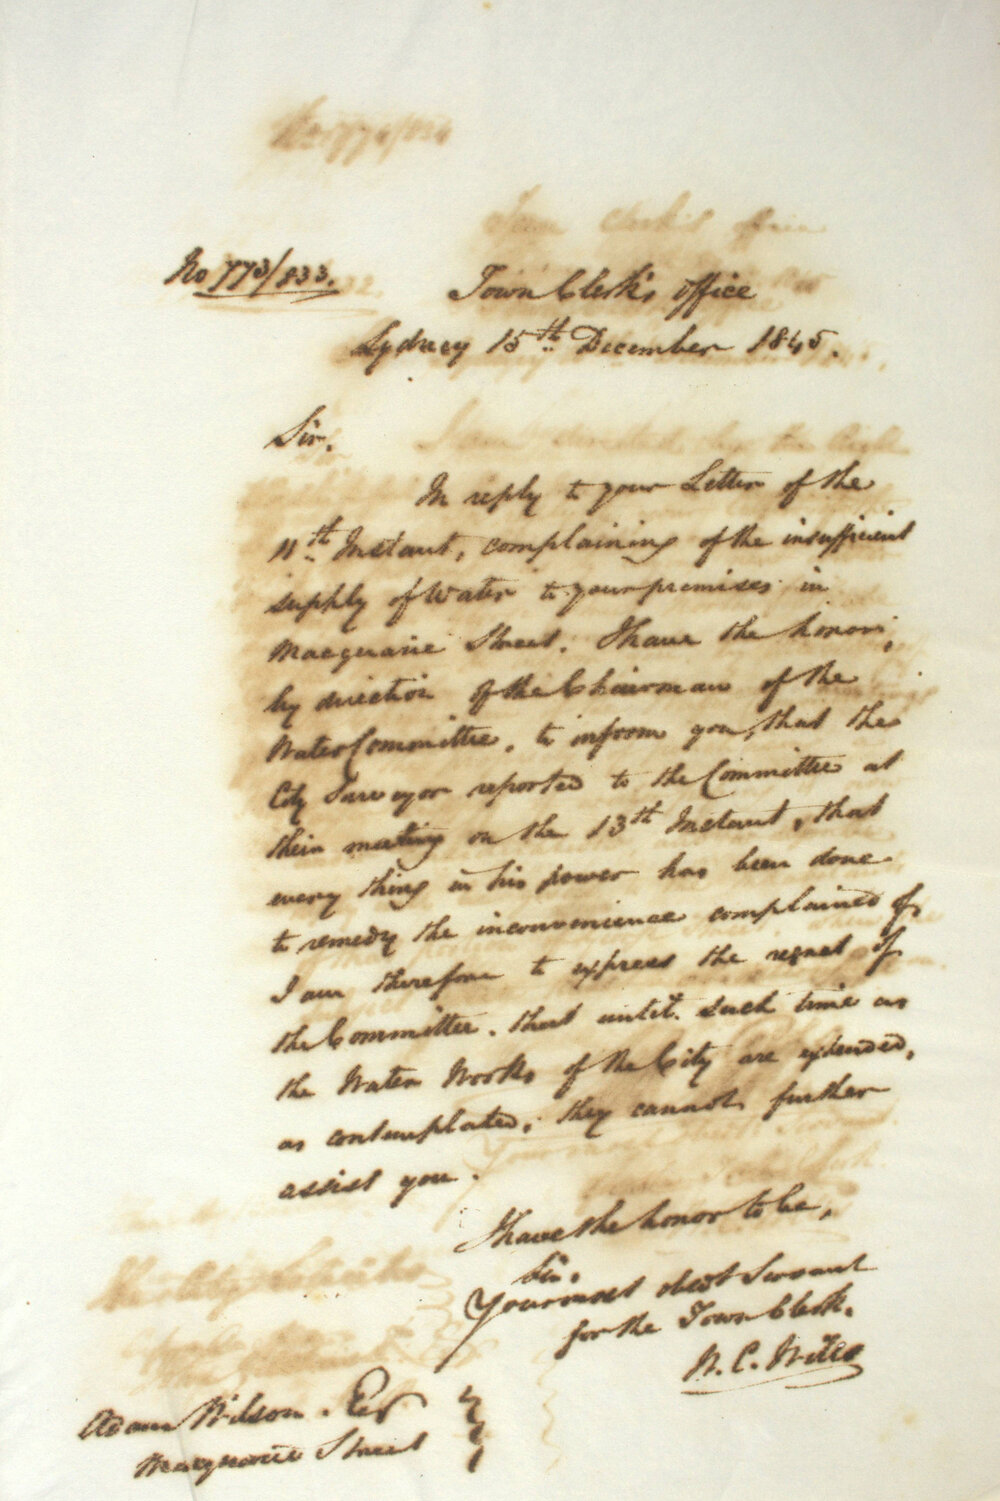 No 773/833.
Town Clerk's Office
Sydney 15th December 1845.
Sir,
In reply to your Letter of the
11th Instant, complaining of the insufficient
supply of Water to your premises in
Macquarie Street. I have the honor,
by direction of the Chairman of the
Water Committee, to inform you, that the
City Surveyor reported to the Committee at
their meeting on the 13th Instant, that
every thing in his power has been done
to remedy the inconvenience complained of,
I am therefore to express the regret of
the Committee, that until such time as
the Water Works of the City are extended,
as contemplated, they cannot further
assist you.
I have the honor to be,
Sir,
Your most obedt Servant
for the Town Clerk.
W. C. Wills
Adam Wilson. Esq
Macquarie Street